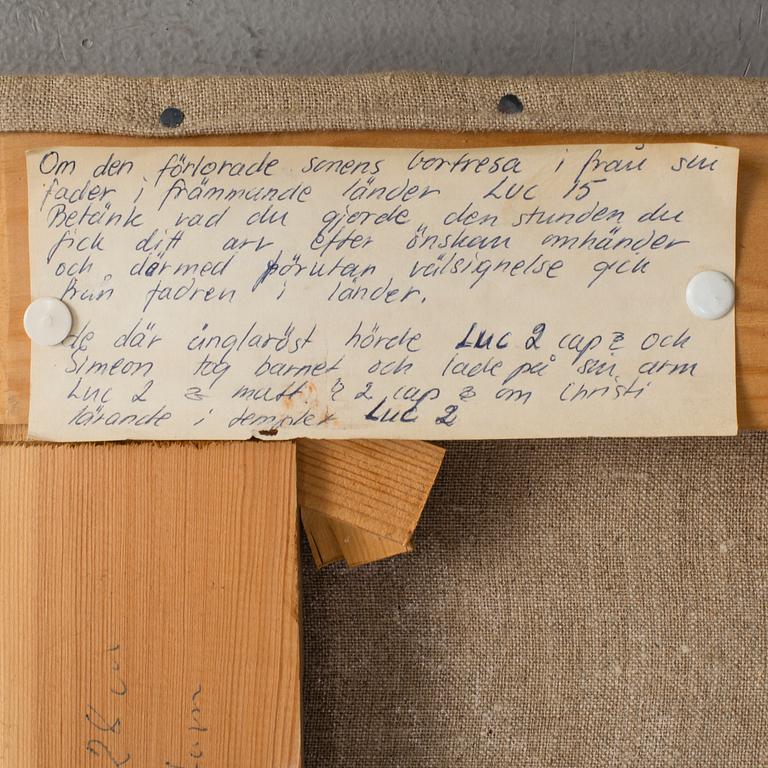 Om den förlorade sonens bortresa i från sin
fader i främmande länder Luc 15
Betänk vad du gjorde den stunden du
fick ditt arv efter önskan omhänder
och därmed förutan välsignelse gick
från fadren i länder.
de där änglaröst hörde Luc 2 cap z och
Simeon tog barnet och lade på sin arm
Luc 2 z matt. 2 cap z om Christi
lärande i templet Luc 2
28 cm